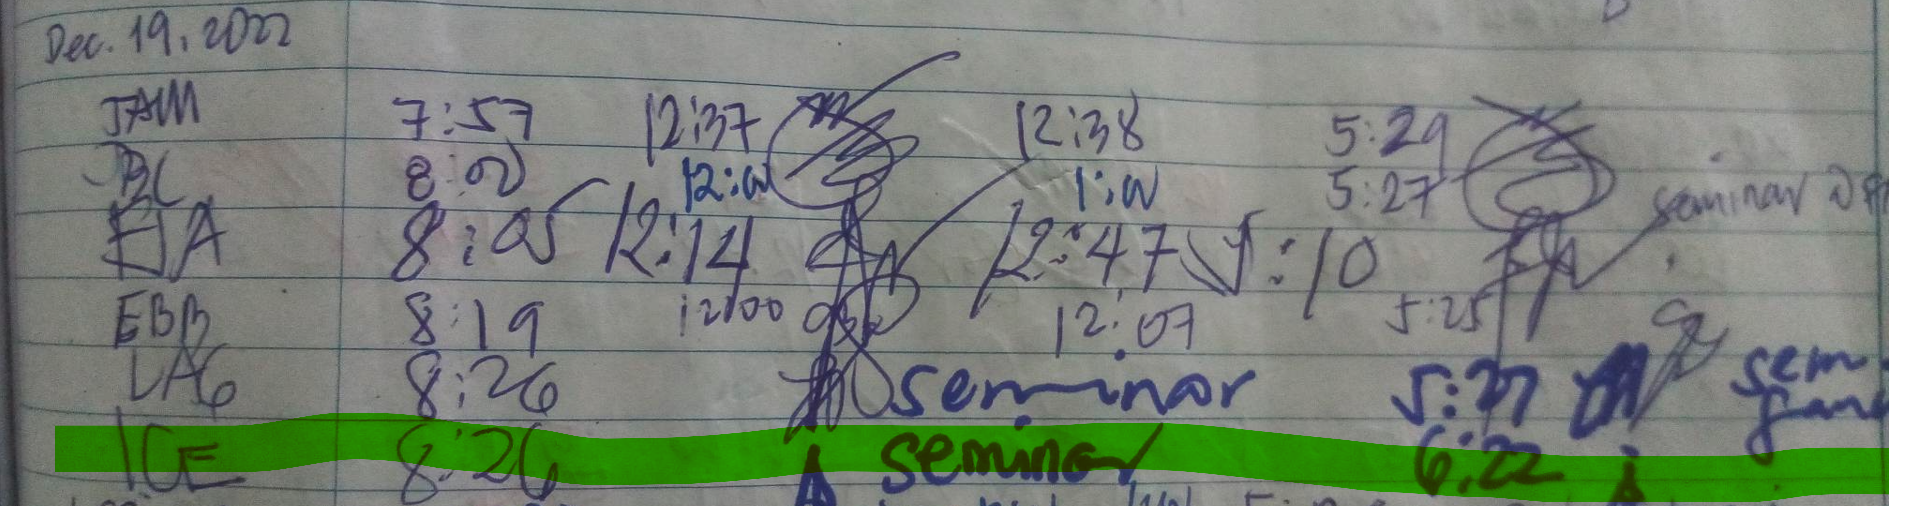 Dec. 19, 2022
JAM 7:57 12:37 12:38 5:29
JBC 8:00 12:00 1:00 5:27 seminar
EJA 8:05 12:14 12:47 5:10
EBB 8:19 12:00 12:07 5:25
LAG 8:26 seminar 5:27 sem
ICE 8:26 seminar 6:22